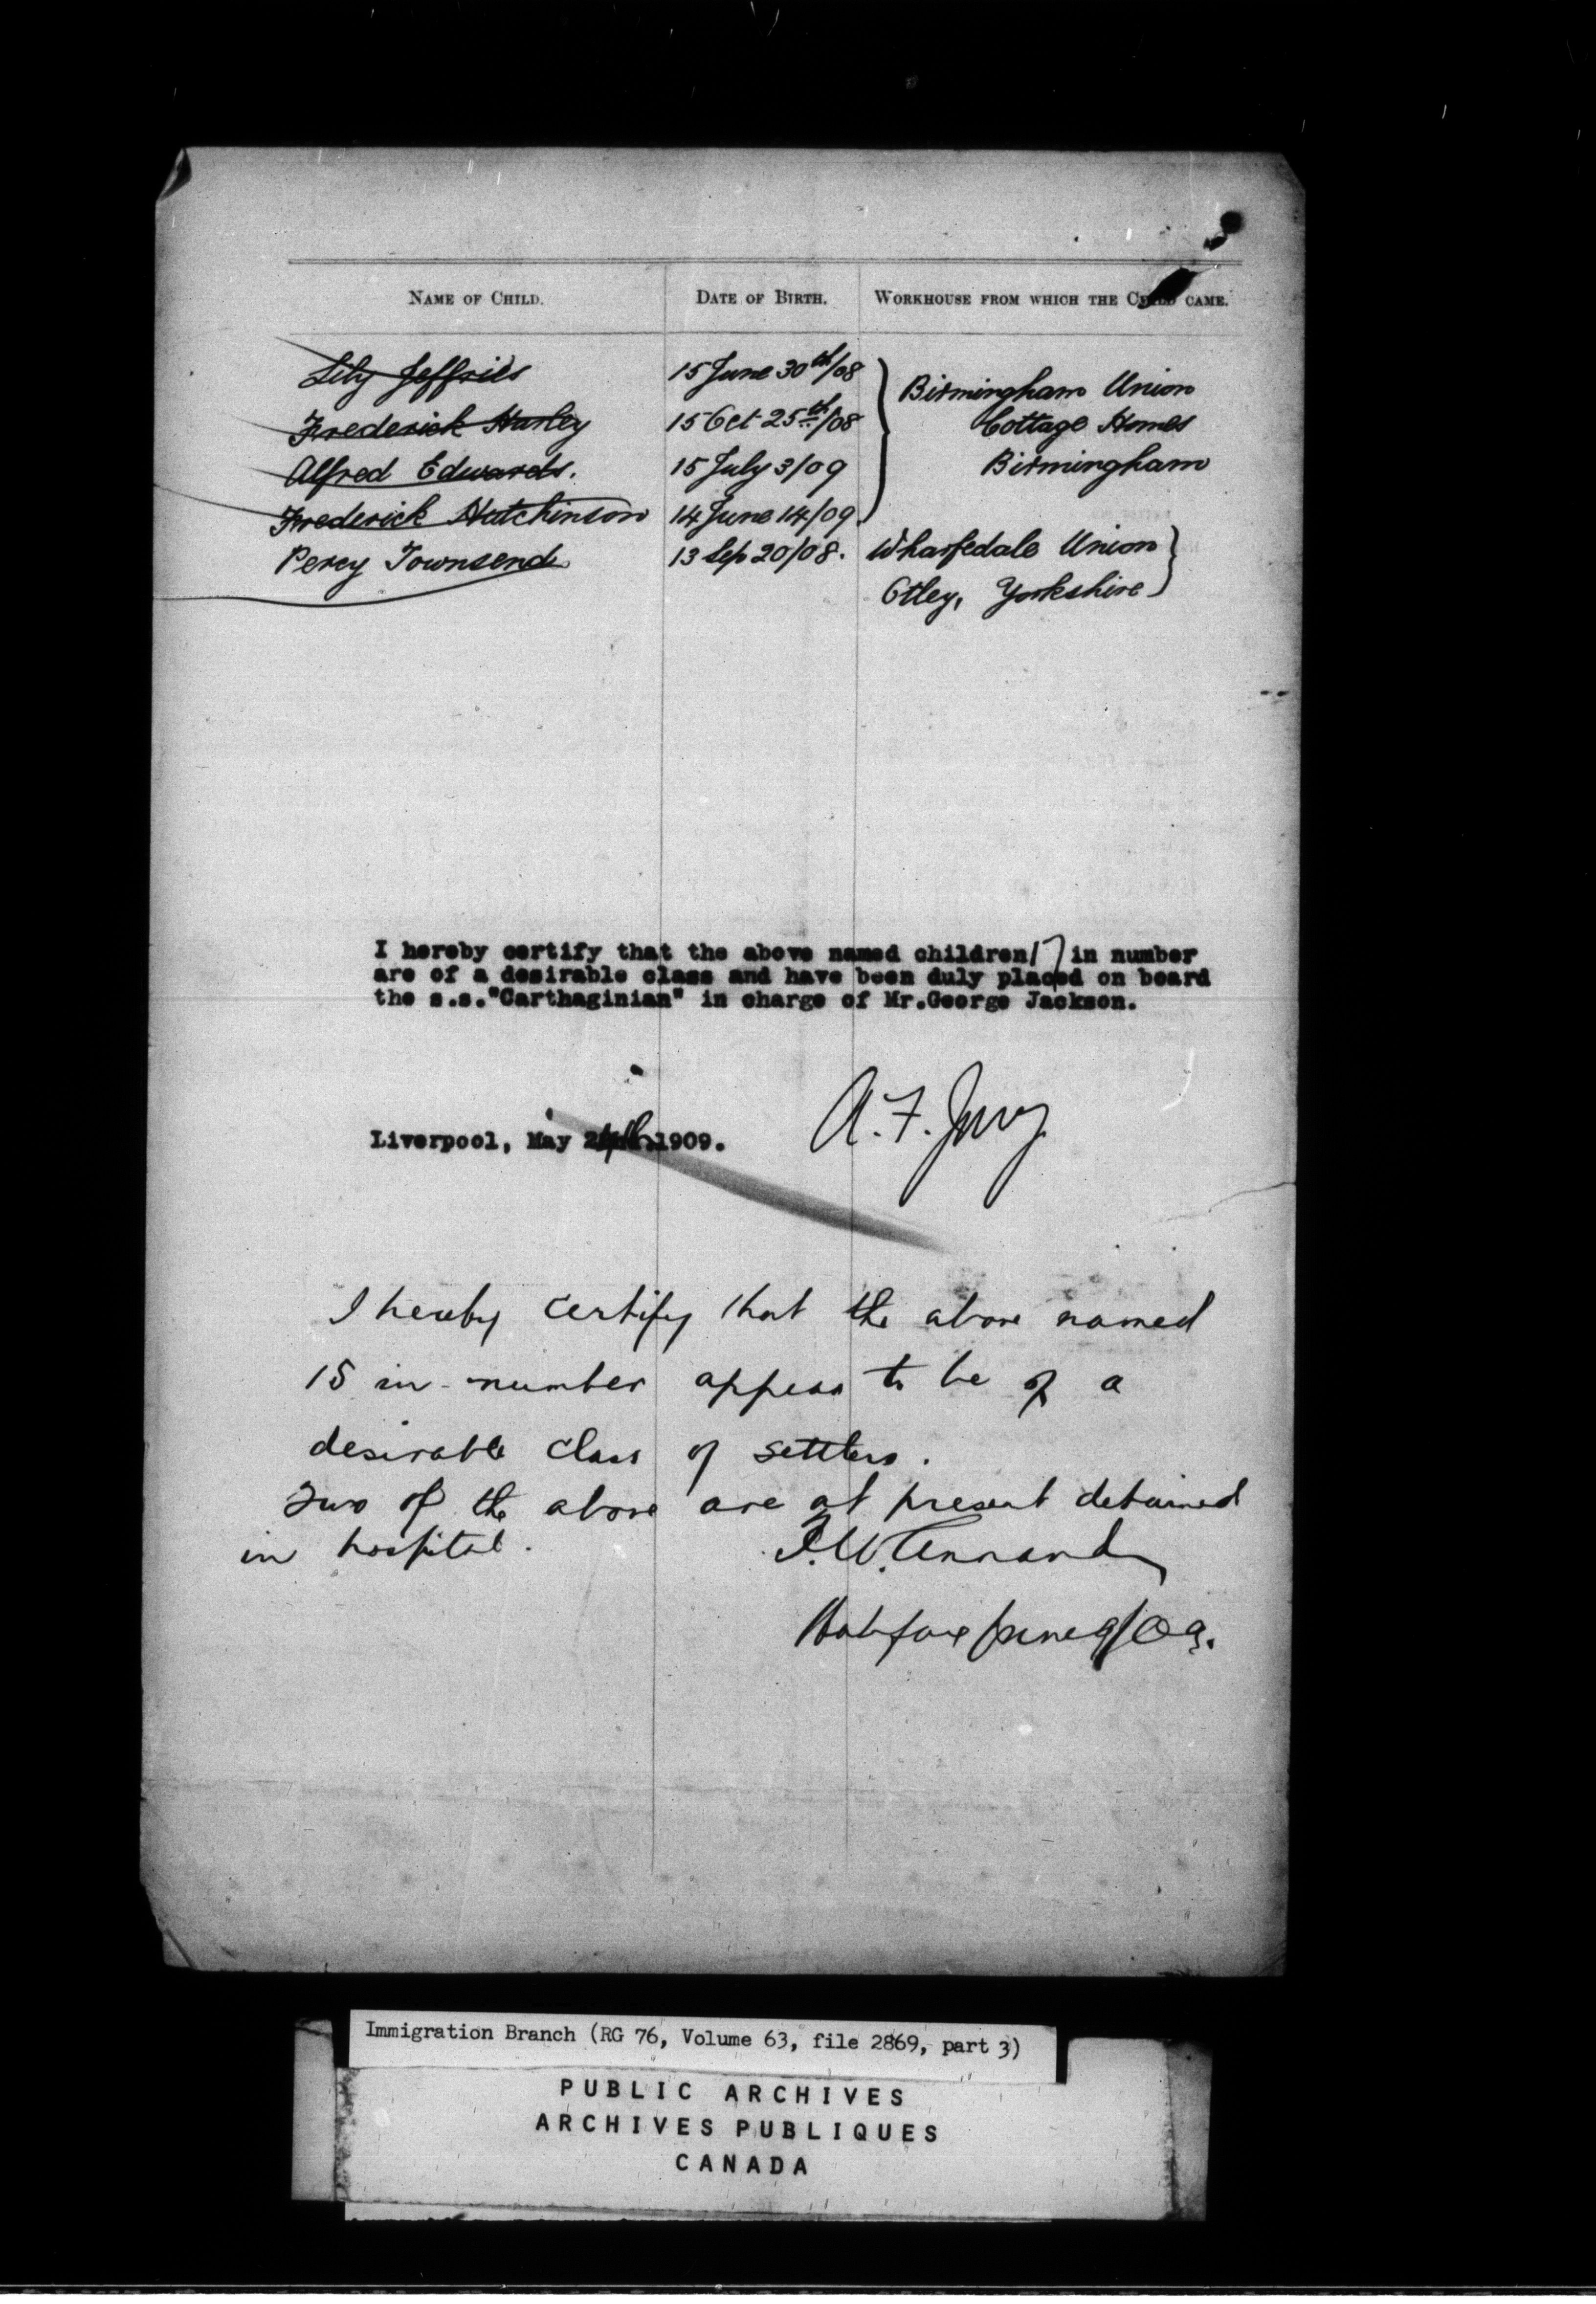 NAME OF CHILD. DATE OF BIRTH. WORKHOUSE FROM WHICH THE CHILD CAME.
Lily Jeffries 15 June 30th/08 Birmingham Union
Frederick Harley 15 Oct 25th/08 Cottage Homes
Alfred Edwards. 15 July 3/09 Birmingham
Frederick Hutchinson 14 June 14/09.
Percy Townsend 13 Sep 20/08. Wharfedale Union
Otley, Yorkshire
I hereby certify that the above named children 17 in number
are of a desirable class and have been duly placed on board
the s.s."Carthaginian" in charge of Mr.George Jackson.
A. F. Jury
Liverpool, May 1909.
I hereby certify that the above named
15 in number appear to be of a
desirable class of settlers.
Two of the above are at present detained
in hospital.
F. W. Annand
Halifax June 9/09.
Immigration Branch (RG 76, Volume 63, file 2869, part 3)
PUBLIC ARCHIVES
ARCHIVES PUBLIQUES
CANADA